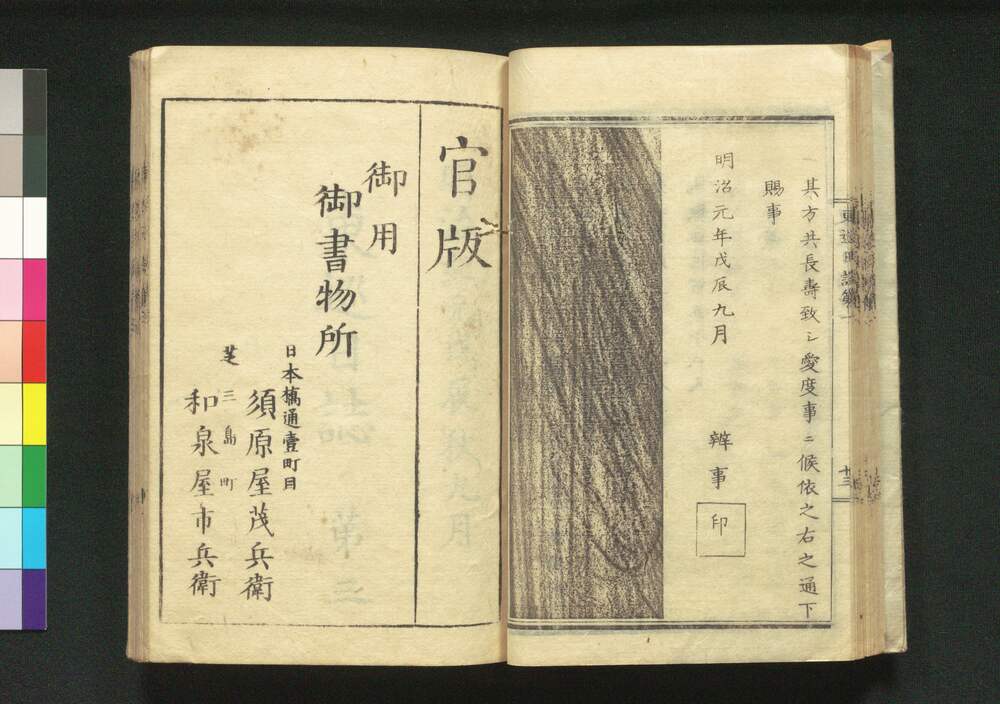 一其方共長壽致シ愛度事ニ候依之右之通下
賜事
明治元年戊辰九月
辨事
印
東巡日誌第一
十三
官版
御用
御書物所
日本橋通壹町目
須原屋茂兵衛
芝三島町
和泉屋市兵衛